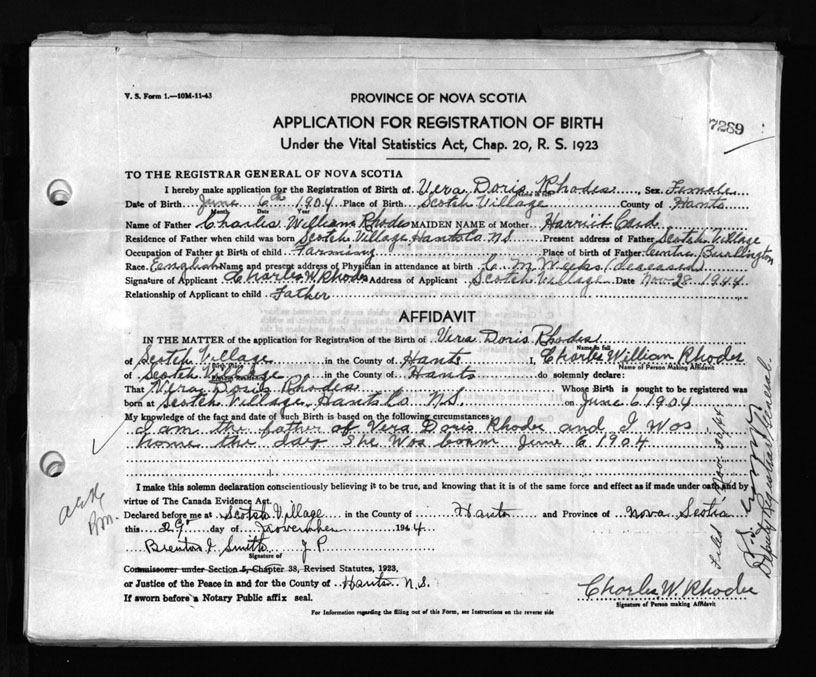 V. S. Form 1.—10M-11-43
PROVINCE OF NOVA SCOTIA
APPLICATION FOR REGISTRATION OF BIRTH
Under the Vital Statistics Act, Chap. 20, R. S. 1923
7289
TO THE REGISTRAR GENERAL OF NOVA SCOTIA
I hereby make application for the Registration of Birth of Vera Doris Rhodes, Sex Female
Date of Birth June 6th 1904 Place of Birth Scotch Village County of Hants
Month Date Year
Name of Father Charles William Rhodes MAIDEN NAME of Mother Harriit Card
Residence of Father when child was born Scotch Village Hants Co. N.S. Present address of Father Scotch Village
Occupation of Father at Birth of child Farming Place of birth of Father Centre Burlington
Race Name and present address of Physician in attendance at birth C. M. Weeks (deseased)
Signature of Applicant Charles W Rhodes Address of Applicant Scotch Village Date Nov 28 1944
Relationship of Applicant to child Father
AFFIDAVIT
IN THE MATTER of the application for Registration of the Birth of Vera Doris Rhodes
Name in full
of Scotch Village in the County of Hants I, Charles William Rhodes
Name of Person Making Affidavit
of Scotch Village in the County of Hants do solemnly declare:
That Vera Doris Rhodes Whose Birth is sought to be registered was
born at Scotch Village Hants Co N.S. on June 6 1904
My knowledge of the fact and date of such Birth is based on the following circumstances
I am the father of Vera Doris Rhodes and I Was
home the day She Was boarn June 6 1904
I make this solemn declaration conscientiously believing it to be true, and knowing that it is of the same force and effect as if made under oath and by
virtue of The Canada Evidence Act.
Declared before me at Scotch Village in the County of Hants and Province of Nova Scotia
this 29 day of November 1944
Brenton I. Smith J P
Signature of
Commissioner under Section 5, Chapter 38, Revised Statutes, 1923,
or Justice of the Peace in and for the County of Hants N.S.
If sworn before a Notary Public affix seal.
Charles W. Rhodes
Signature of Person making Affidavit
For Information regarding the filling out of this Form, see Instructions on the reverse side
Filed Nov. 30/44
Deputy Registrar General.